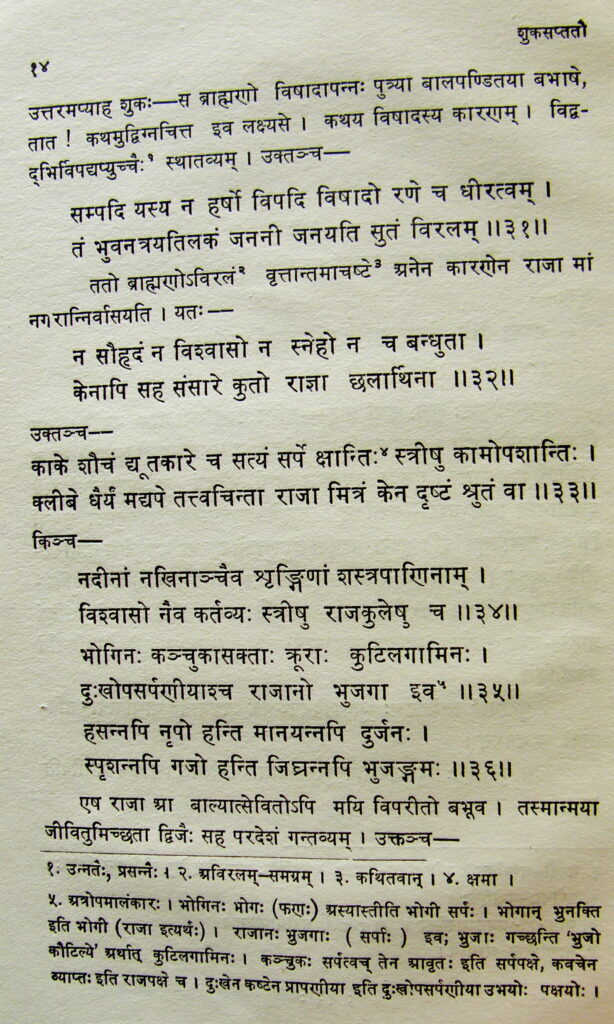 शुकसप्ततौ
१४
उत्तरमप्याह शुकः—स ब्राह्मणो विषादापन्नः पुत्र्या बालपण्डितया बभाषे,
तात ! कथमुद्विग्नचित्त इव लक्ष्यसे । कथय विषादस्य कारणम् । विद्व-
द्भिर्विपद्यप्युच्चैः¹ स्थातव्यम् । उक्तञ्च—
सम्पदि यस्य न हर्षो विपदि विषादो रणे च धीरत्वम् ।
तं भुवनत्रयतिलकं जननी जनयति सुतं विरलम् ॥३१॥
ततो ब्राह्मणोऽविरलं² वृत्तान्तमाचष्टे³ अनेन कारणेन राजा मां
नगरान्निर्वासयति । यतः--
न सौहृदं न विश्वासो न स्नेहो न च बन्धुता ।
केनापि सह संसारे कुतो राज्ञा छलार्थिना ॥३२॥
उक्तञ्च--
काके शौचं द्यूतकारे च सत्यं सर्पे क्षान्तिः⁴ स्त्रीषु कामोपशान्तिः ।
क्लीबे धैर्यं मद्यपे तत्त्वचिन्ता राजा मित्रं केन दृष्टं श्रुतं वा ॥३३॥
किञ्च—
नदीनां नखिनाञ्चैव शृङ्गिणां शस्त्रपाणिनाम् ।
विश्वासो नैव कर्तव्यः स्त्रीषु राजकुलेषु च ॥३४॥
भोगिनः कञ्चुकासक्ताः क्रूराः कुटिलगामिनः ।
दुःखोपसर्पणीयाश्च राजानो भुजगा इव⁵ ॥३५॥
हसन्नपि नृपो हन्ति मानयन्नपि दुर्जनः ।
स्पृशन्नपि गजो हन्ति जिघ्रन्नपि भुजङ्गमः ॥३६॥
एष राजा आ बाल्यात्सेवितोऽपि मयि विपरीतो बभूव । तस्मान्मया
जीवितुमिच्छता द्विजैः सह परदेशं गन्तव्यम् । उक्तञ्च—
१. उन्नतैः, प्रसन्नैः । २. अविरलम्-समग्रम् । ३. कथितवान् । ४. क्षमा ।
५. अत्रोपमालंकारः । भोगिनः भोगः (फणः) अस्यास्तीति भोगी सर्पः । भोगान् भुनक्ति
इति भोगी (राजा इत्यर्थः) । राजानः भुजगाः ( सर्पाः ) इव; भुजाः गच्छन्ति 'भुजो
कौटिल्ये' अर्थात् कुटिलगामिनः । कञ्चुकः सर्पत्वच् तेन आवृतः इति सर्पपक्षे, कवचेन
व्याप्तः इति राजपक्षे च । दुःखेन कष्टेन प्रापणीया इति दुःखोपसर्पणीया उभयोः पक्षयोः ।